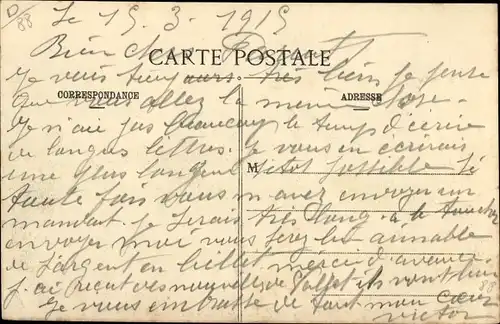 D/88
Le 15. 3. 1915
Bien cher
CARTE POSTALE
Je vais toujours très bien je pense
CORRESPONDANCE
ADRESSE
que vous allez la même chose.
Je n'ai pas le temps d'écrire
de longues lettres. Je vous en écrirais
M
une plus longue possible si
toute fois vous m'avez envoyer un
mandat. je serais très
envoyer moi vous serez bien aimable
de l'argent en billet merci d'avance
j'ai reçut des nouvelles de ils vont bien
88
Je vous embrasse de tout mon cœur
victor